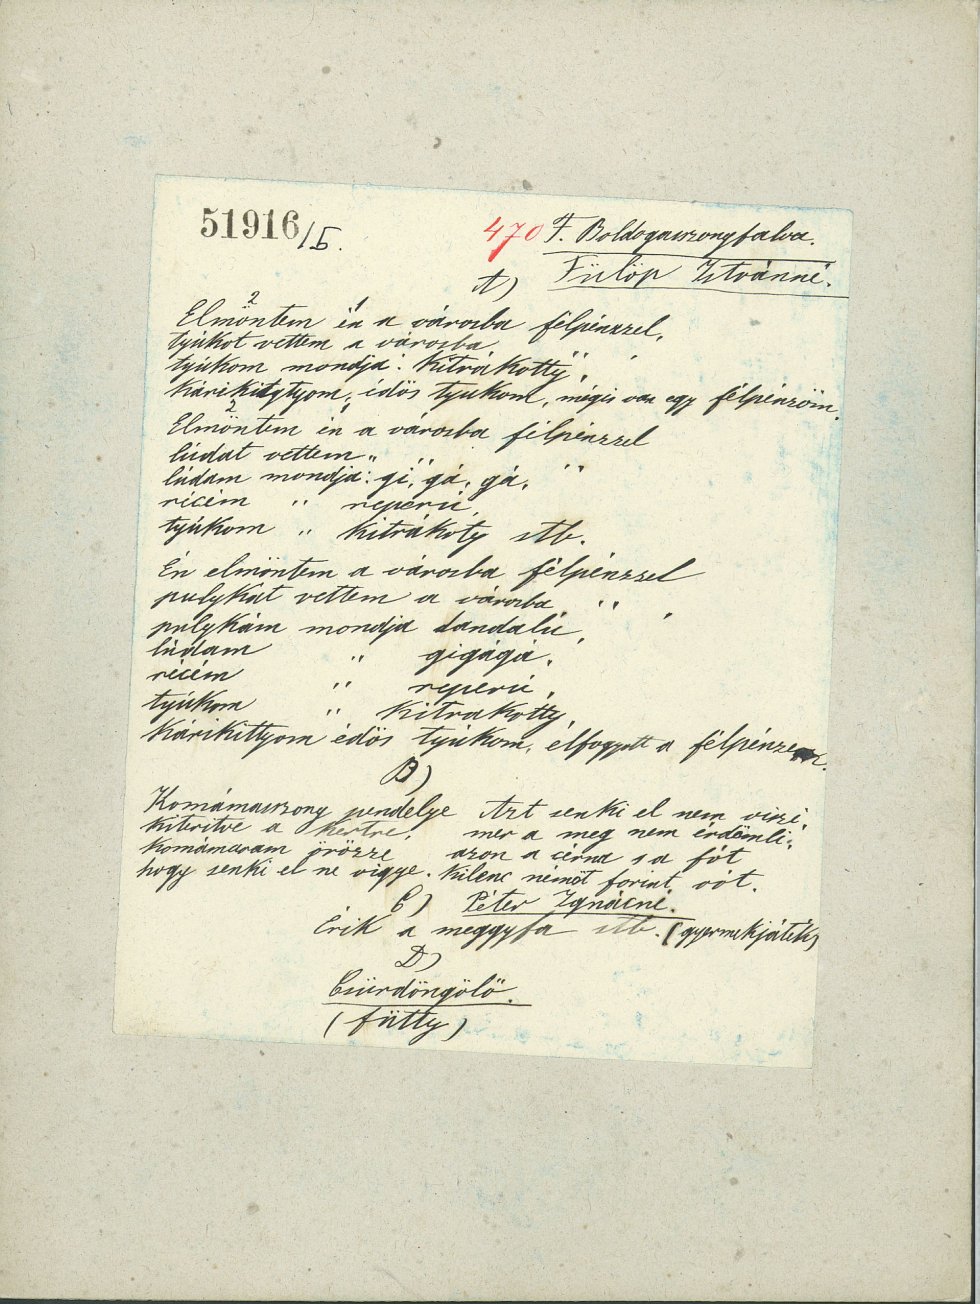 51916/5.
470 F. Boldogasszonyfalva.
A) Fülöp Istvánné.
2 1
Elmöntem én a városba félpénzzel,
tyúkot vettem a városba " "
tyúkom mondja: kitrákotty,
kárikittyom, édös tyukom, mégis van egy félpénzöm.
2 1
Elmöntem én a városba félpénzzel
lúdat vettem " " "
lúdam mondja: gi, gá, gá,
récém " reperú,
tyúkom " kitrákoty stb.
Én elmöntem a városba félpénzzel
pulykát vettem a városba, "
pulykám mondja dandalu,
lúdam " gigágá,
récém " reperú,
tyúkom " kitrakotty,
kárikittyom édös tyúkom, elfogyott a félpénzem.
B)
Komámasszony pendelye Azt senki el nem viszi,
kiteritve a kertre, mer a meg nem érdömli,
komámuram őrözze azon a cérna s a fót
hogy senki el ne vigye. kilenc németh forint vót.
C) Péter Ignácné.
Érik a meggyfa stb. (gyermekjáték)
D)
Csürdöngölő.
(fütty)